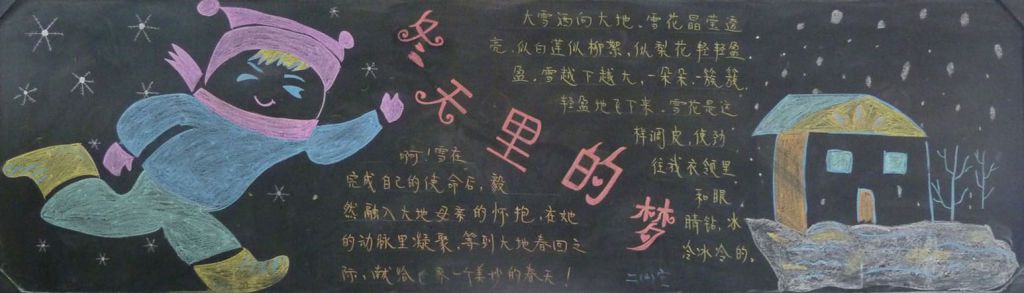 冬天里的梦
大雪洒向大地、雪花晶莹透
亮，似白莲似柳絮，似梨花轻轻盈
盈，雪越下越大，一朵朵一簇簇，
轻盈地飞下来，雪花是这
样调皮，使劲
往我衣领里
和眼
睛钻，冰
冷冰冷的。
啊！雪在
完成自己的使命后，毅
然融入大地母亲的怀抱，在她
的动脉里凝聚，等到大地春回之
际，就给 来一个美妙的春天！